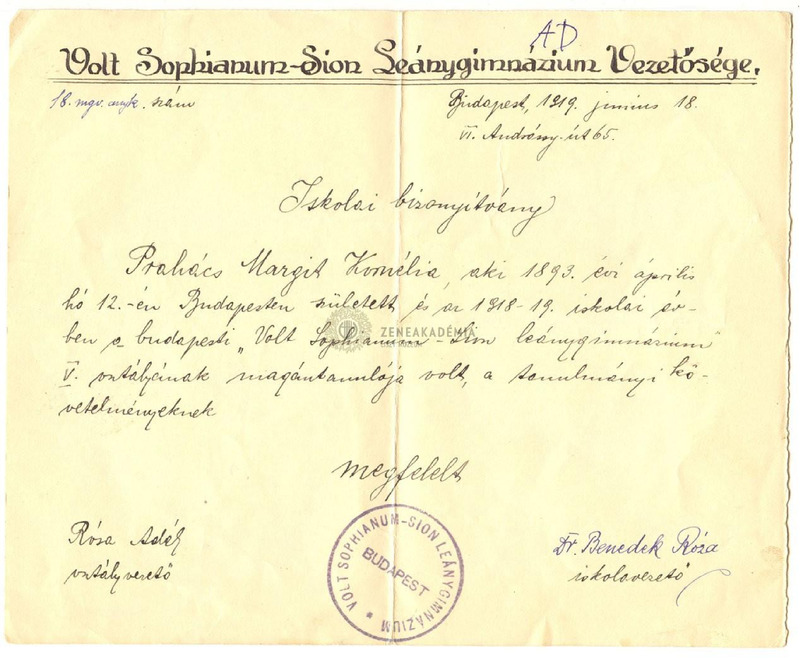 AD
Volt Sophianum-Sion Leánygimnázium Vezetősége.
18. mgv. anyk. szám
Budapest, 1919. június 18.
VI. Andrássy-út 65.
Iskolai bizonyítvány
Prahács Margit Kornélia, aki 1893. évi április
hó 12.-én Budapesten született és az 1918-19. iskolai év-
ben a budapesti „Volt Sophianum-Sion leánygimnázium"
V. osztályának magántanulója volt, a tanulmányi kö-
vetelményeknek
megfelelt
ZENEAKADÉMIA
Rósa Adél
osztályvezető
VOLT SOPHIANUM-SION LEÁNYGIMNÁZIUM
BUDAPEST
Dr. Benedek Róza
iskolavezető